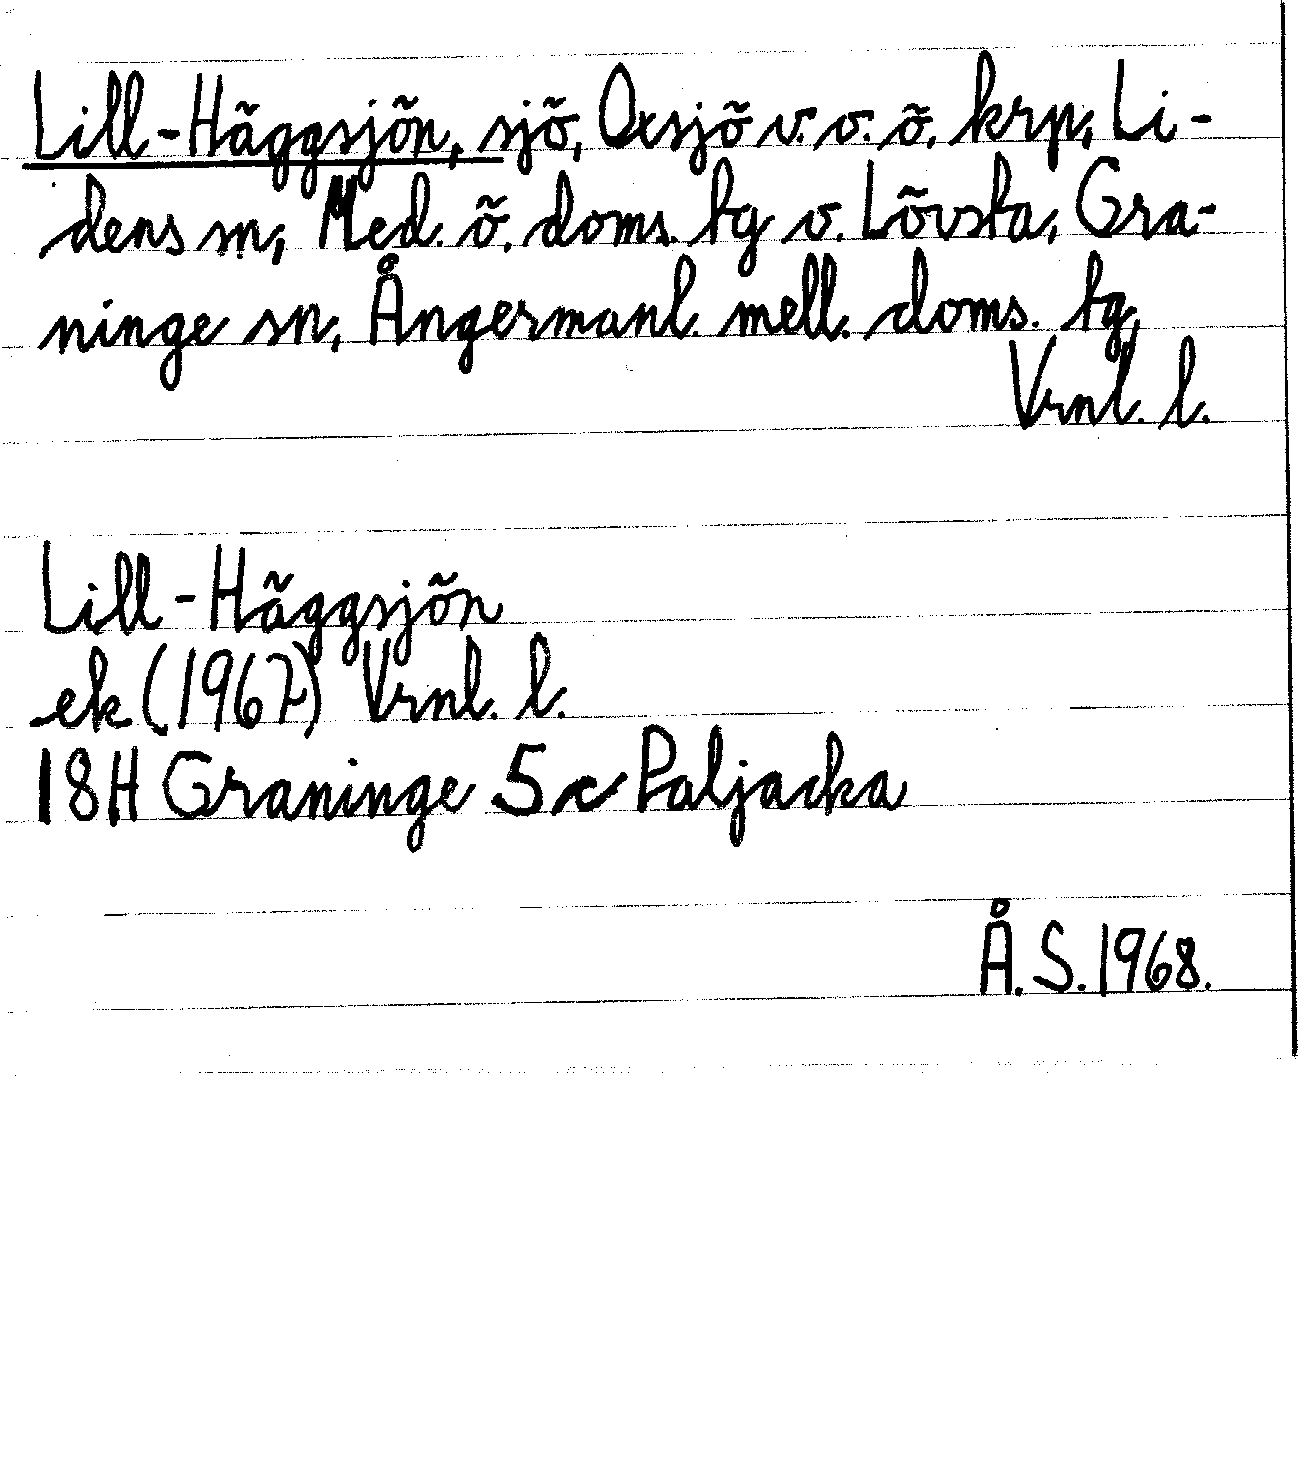 Lill-Häggsjön, sjö, Oxsjö v. o. ö. krp, Li-
dens sn, Med. ö. doms. tg o. Lövsta, Gra-
ninge sn, Ångermanl. mell. doms. tg,
Vrnl. l.
Lill-Häggsjön
ek (1967) Vrnl. l.
18H Graninge 5c Paljacka
Å. S. 1968.